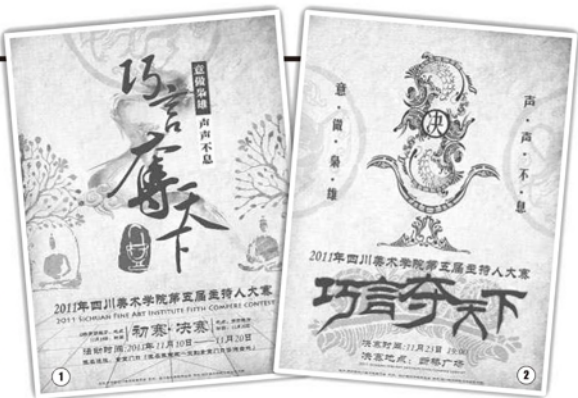 巧言奪天下
意做枭雄 声声不息
2011年四川美术学院第五届主持人大赛
2011 SICHUAN FINE ART INSTITUTE FIFTH COMPERE CONTEST
初赛·决赛
活动时间:2011年11月10日——11月20日
①
意·做·枭·雄
声·声·不·息
决
2011年四川美术学院第五届主持人大赛
巧言夺天下
决赛时间:11月23日 19:00
决赛地点:
②